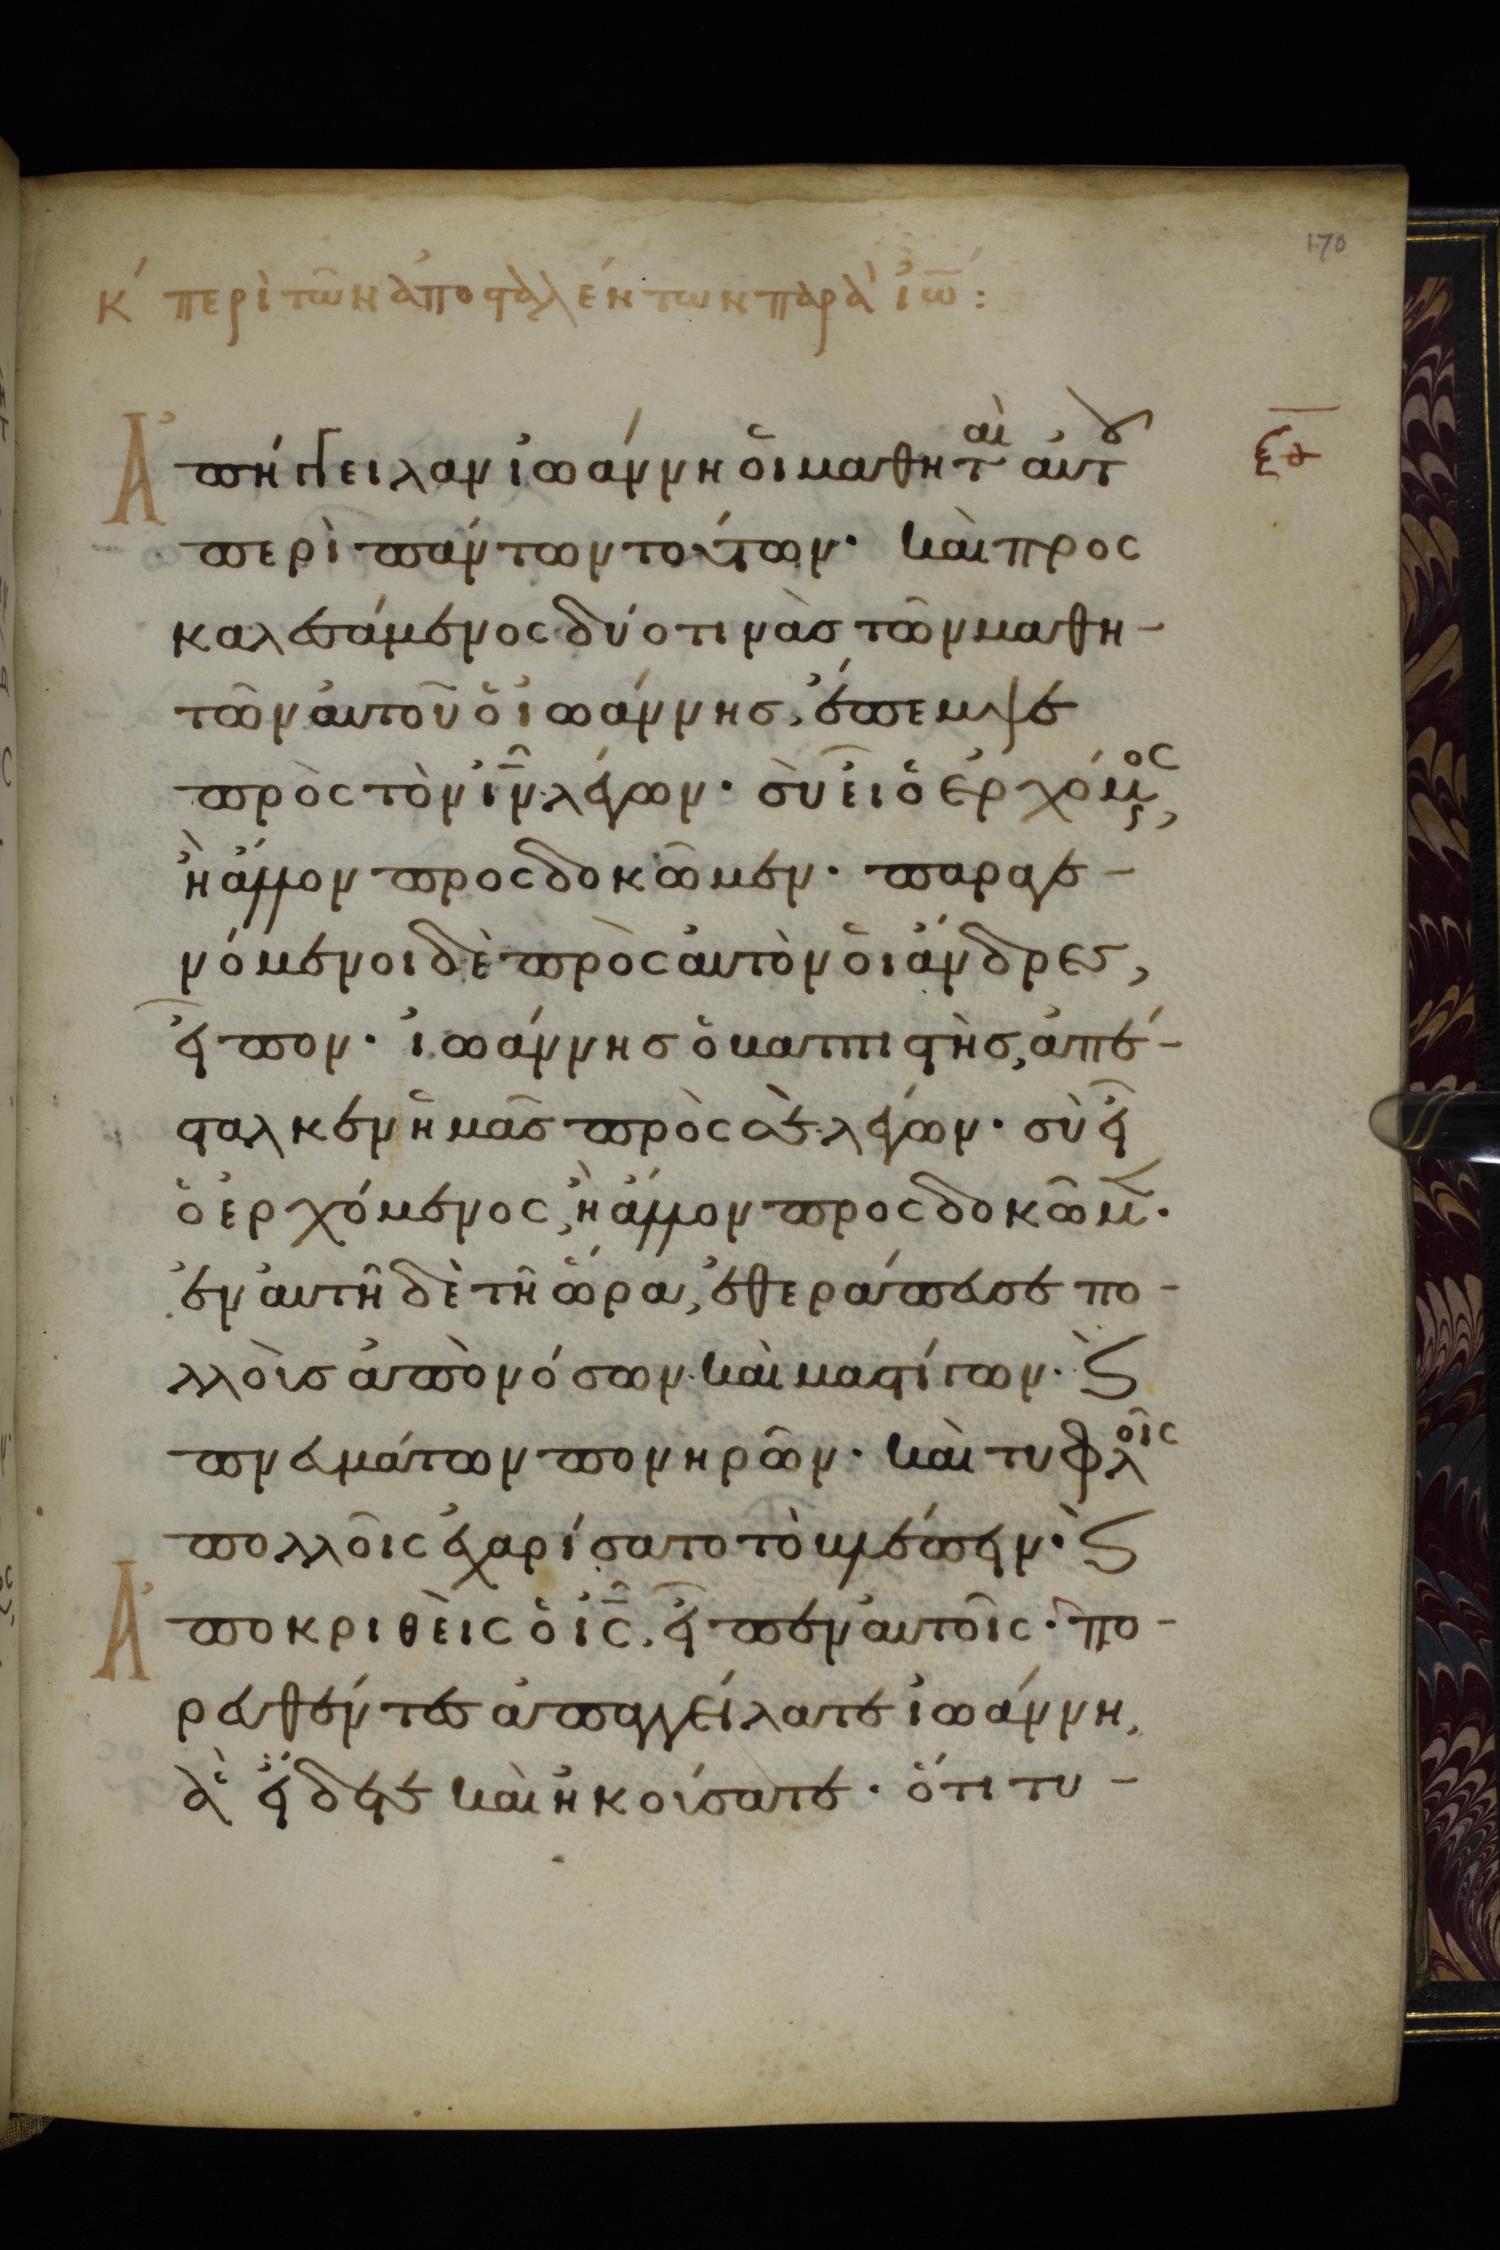 170
κ́ περὶ τῶν ἀποσταλέντων παρὰ ἰω̅:
Ἀπήγγειλαν ἰωάννη οἱ μαθηταὶ αὐτου
ξθ
περὶ πάντων τούτων· καὶ προς
καλεσάμενος δύο τινὰς τῶν μαθη-
τῶν αὐτοῦ ὁ ἰωάννης, ἔπεμψε
πρὸς τὸν ι̅ν̅ λέγων· σὺ εἶ ὁ ἐρχόμενος,
ἢ ἄλλον προσδοκῶμεν· παραγε-
νόμενοι δὲ πρὸς αὐτὸν οἱ ἄνδρες,
εἶπον· ἰωάννης ὁ βαπτιστὴς, ἀπέ-
σταλκεν ἡμᾶς πρὸς σὲ λέγων· σὺ εἶ
ὁ ἐρχόμενος, ἢ ἄλλον προσδοκῶμεν·
ἐν αὐτῇ δὲ τῇ ὥρα, ἐθεράπευσε πο-
λλοὺς ἀπὸ νόσων καὶ μαστίγων· ϗ
πνευμάτων πονηρῶν· καὶ τυφλοῖς
πολλοῖς ἐχαρίσατο τὸ βλέπειν· ϗ
Ἀποκριθεὶς ὁ ι̅ς̅, εἶπεν αὐτοῖς· πο-
ρευθέντες ἀπαγγείλατε ἰωάννη,
ἃ εἴδετε καὶ ἠκούσατε· ὅτι τυ-